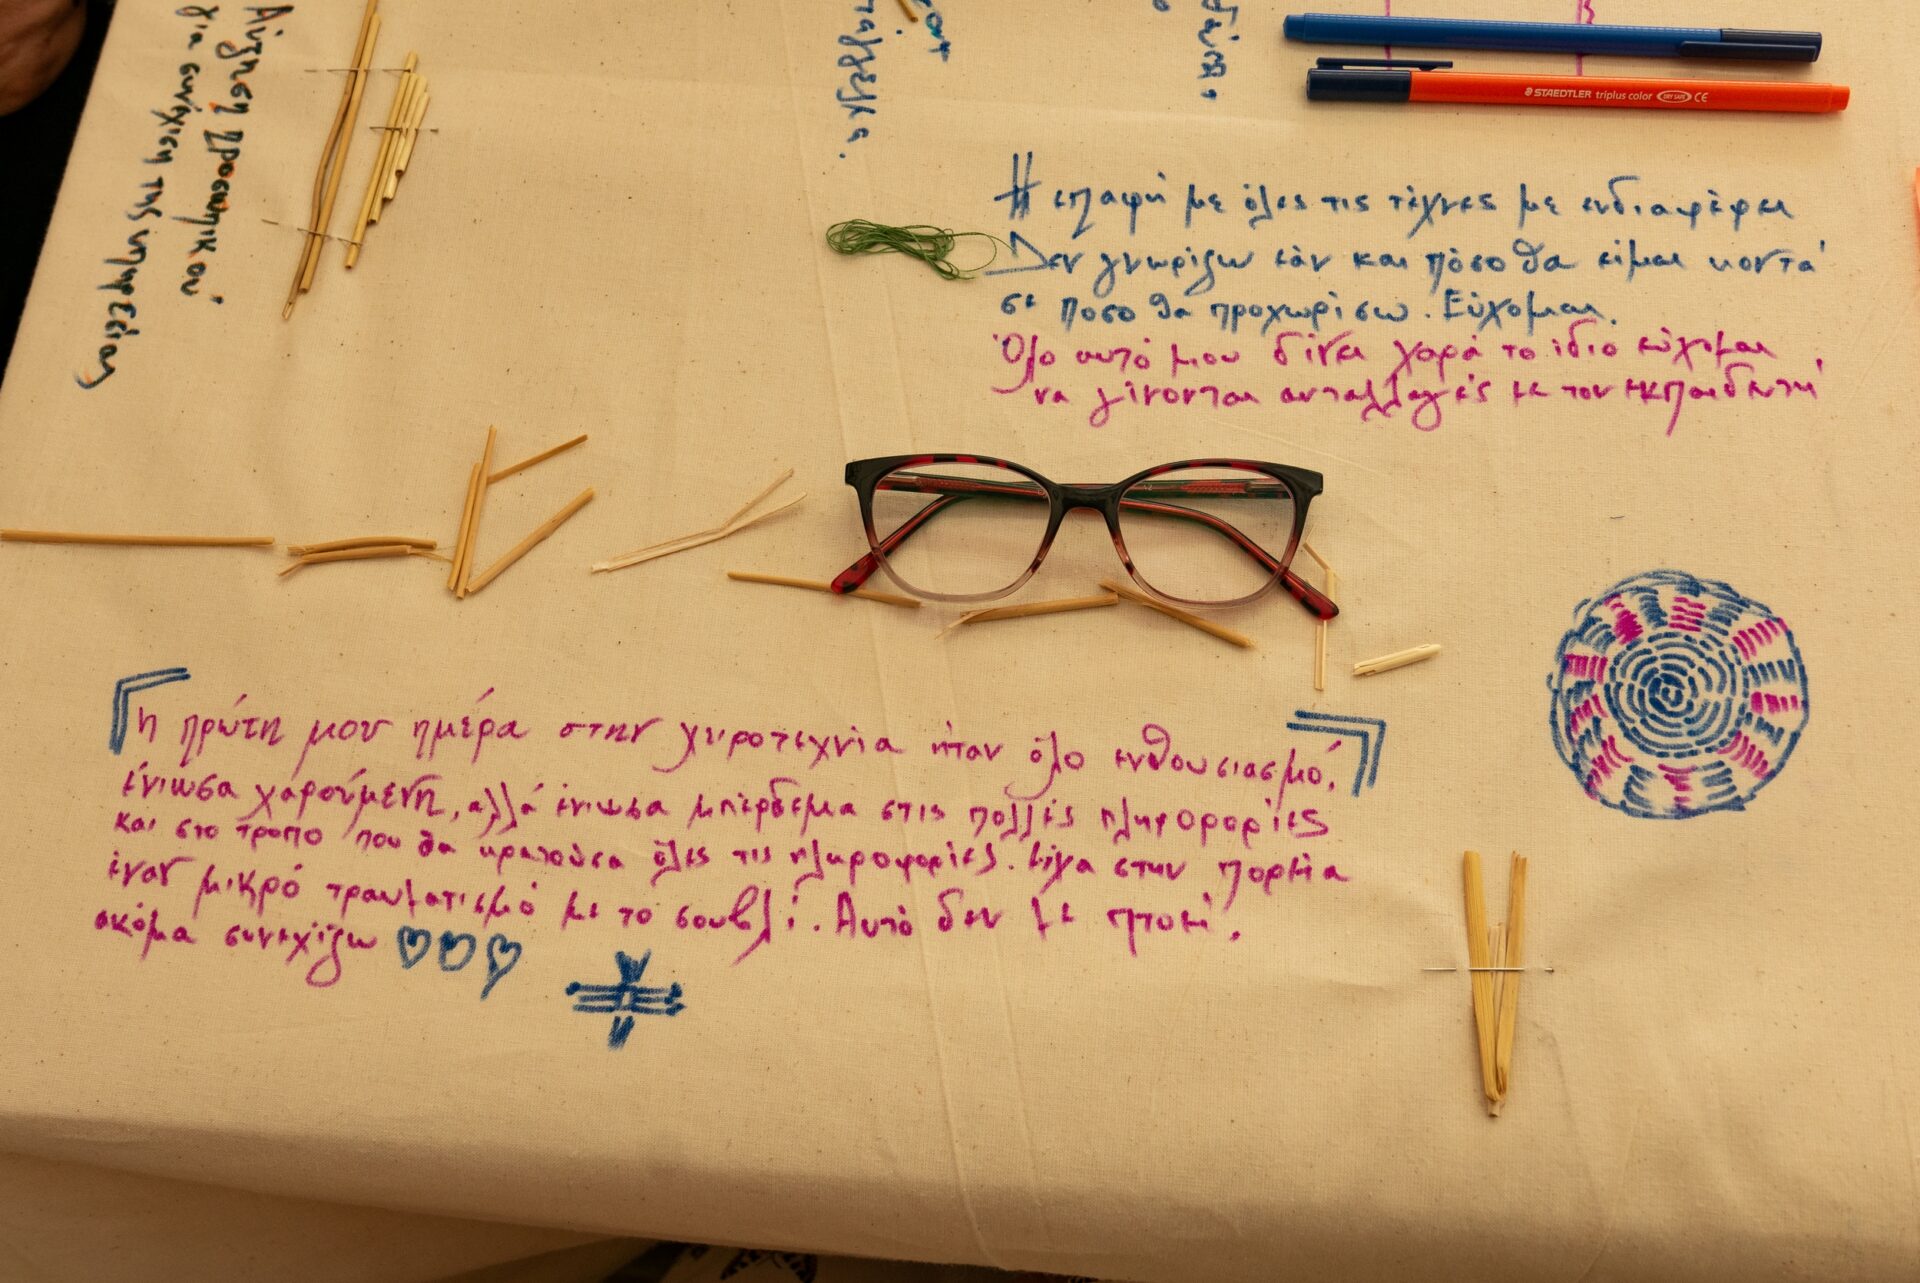 Αίτηση προσωπικού
για συνέχιση της υπηρεσίας
STAEDTLER triplus color DRY SAFE CE
Η επαφή με όλες τις τέχνες με ενδιαφέρει
Δεν γνωρίζω εάν και πόσο θα είμαι κοντά
σε ποσο θα προχωρίσω. Εύχομαι.
Όλο αυτό μου δίνει χαρά το ίδιο εύχομαι
να γίνονται ανταλλαγές με τον εκπαιδευτή
η πρώτη μου ημέρα στην χειροτεχνία ήταν όλο ενθουσιασμό,
ένιωσα χαρούμενη, αλλά ένιωσα μπέρδεμα στις πολλές πληροφορίες
και στο τροπο που θα κρατούσα όλες τις πληροφορίες. είχα στην πορεία
έναν μικρό τραυματισμό με το σουβλί. Αυτό δεν με πτοεί,
ακόμα συνεχίζω